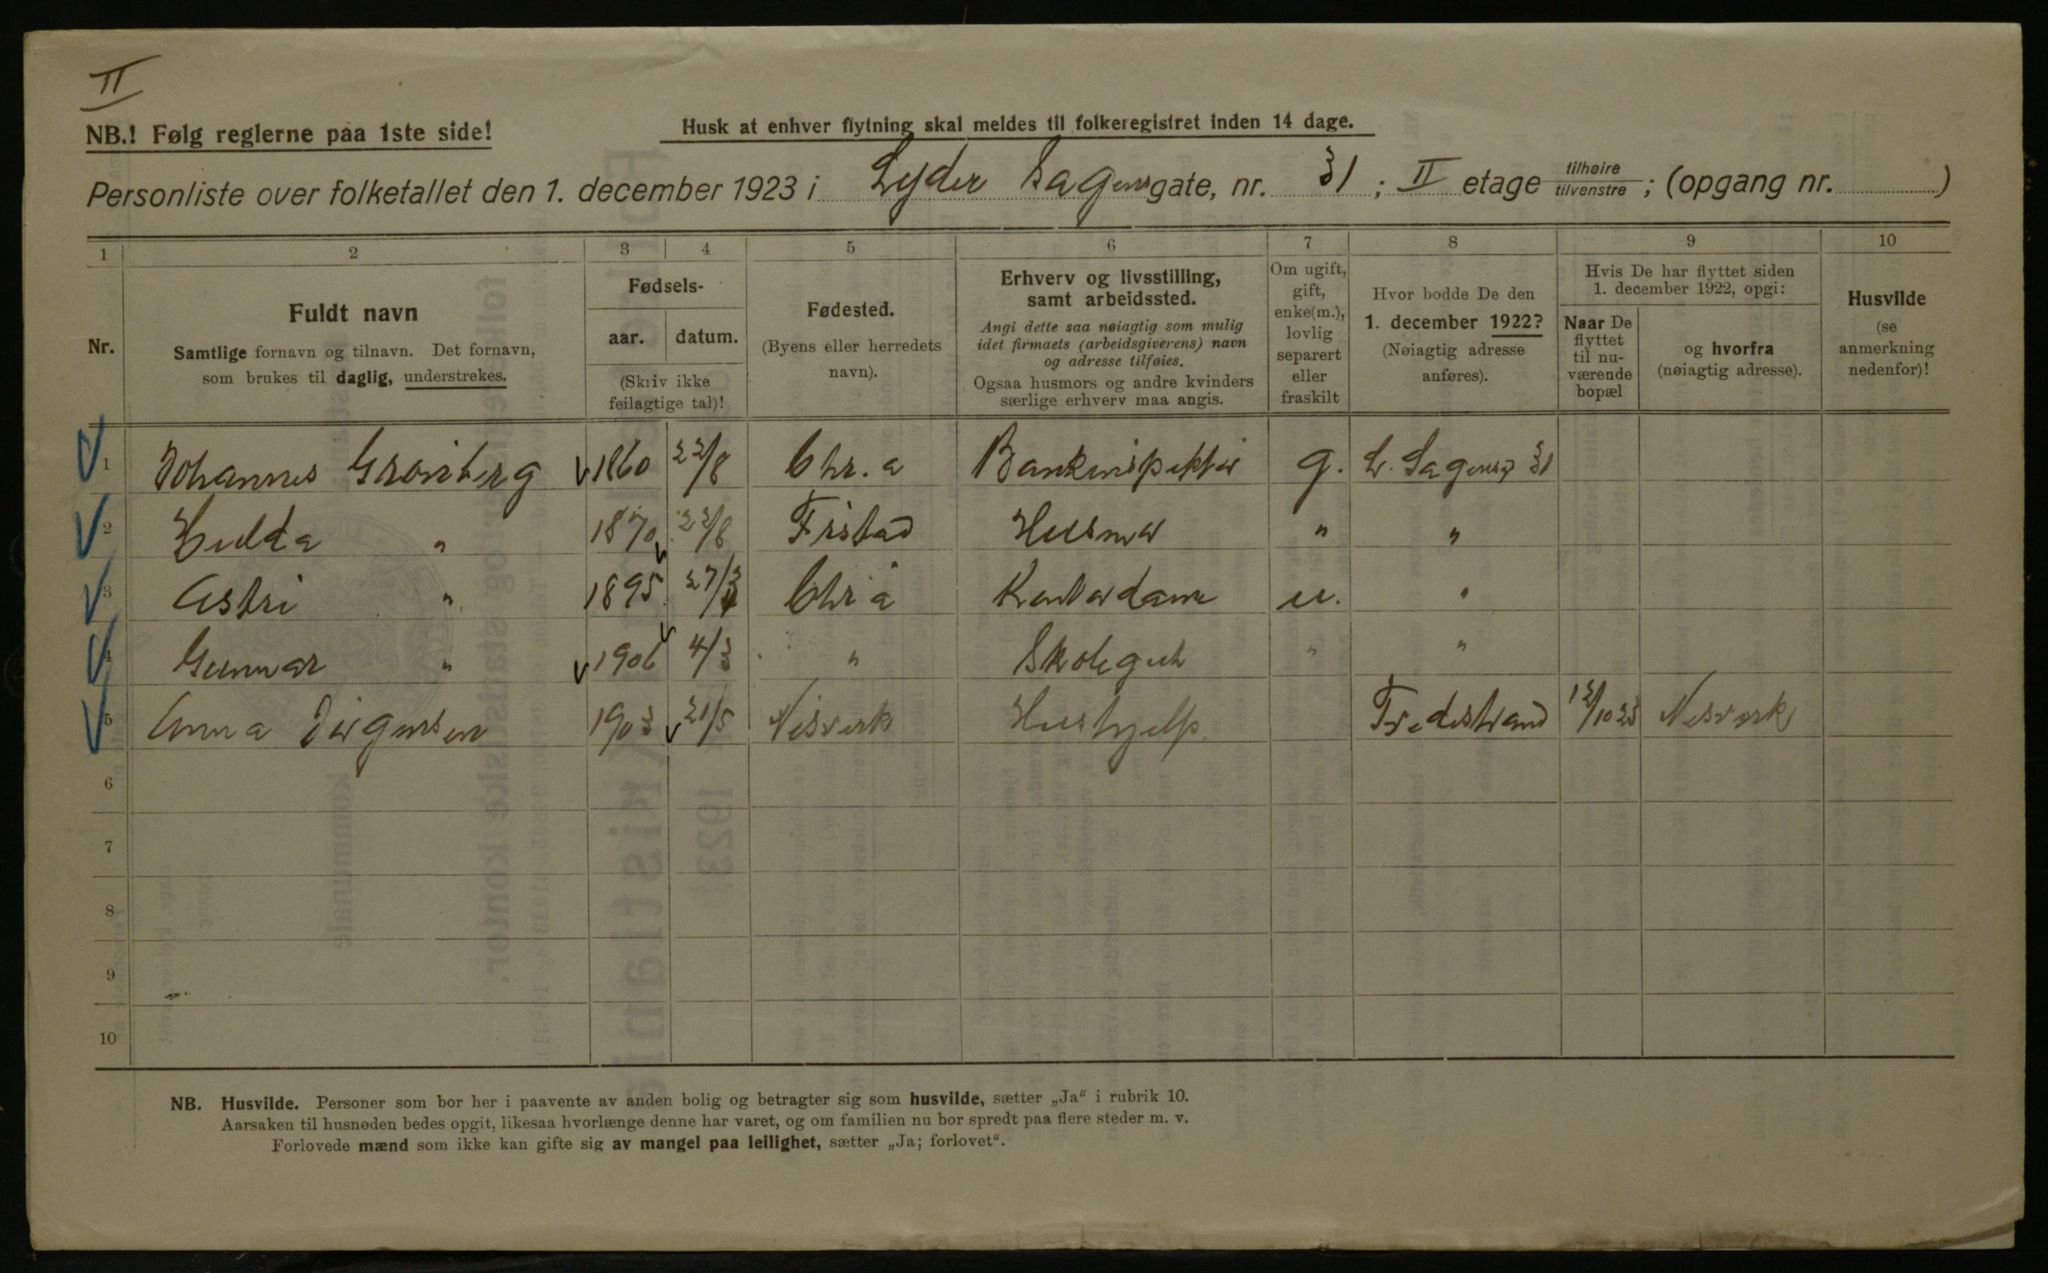 II
NB.! Følg reglerne paa 1ste side!
Husk at enhver flytning skal meldes til folkeregistret inden 14 dage.
Personliste over folketallet den 1. december 1923 i Lyder Sagens gate, nr. 31 ; II etage tilhøire tilvenstre ; (opgang nr. )
1 2 3 4 5 6 7 8 9 10
Nr.
Fuldt navn
Samtlige fornavn og tilnavn. Det fornavn,
som brukes til daglig, understrekes.
Fødsels-
aar. datum.
(Skriv ikke
feilagtige tal)!
Fødested.
(Byens eller herredets
navn).
Erhverv og livsstilling,
samt arbeidssted.
Angi dette saa nøiagtig som mulig
idet firmaets (arbeidsgiverens) navn
og adresse tilføies.
Ogsaa husmors og andre kvinders
særlige erhverv maa angis.
Om ugift,
gift,
enke(m.),
lovlig
separert
eller
fraskilt
Hvor bodde De den
1. december 1922?
(Nøiagtig adresse
anføres).
Hvis De har flyttet siden
1. december 1922, opgi:
Naar De
flyttet
til nu-
værende
bopæl
og hvorfra
(nøiagtig adresse).
Husvilde
(se
anmerkning
nedenfor)!
1 Johannes Grønberg 1860 22/8 Chr.a Bankinspektør g. L. Sagensg 31
2 Hulda " 1870 22/8 Fr.stad Husmor " "
3 Astri " 1895 27/3 Chr a Kontordame u. "
4 Gunnar " 1906 4/3 " Skolegut " "
5 Anna Jørgensen 1903 21/5 Nesverk Hushjelp Tvedestrand 12/10 23 Nesverk
6
7
8
9
10
NB. Husvilde. Personer som bor her i paavente av anden bolig og betragter sig som husvilde, sætter „Ja“ i rubrik 10.
Aarsaken til husnøden bedes opgit, likesaa hvorlænge denne har varet, og om familien nu bor spredt paa flere steder m. v.
Forlovede mænd som ikke kan gifte sig av mangel paa leilighet, sætter „Ja; forlovet“.